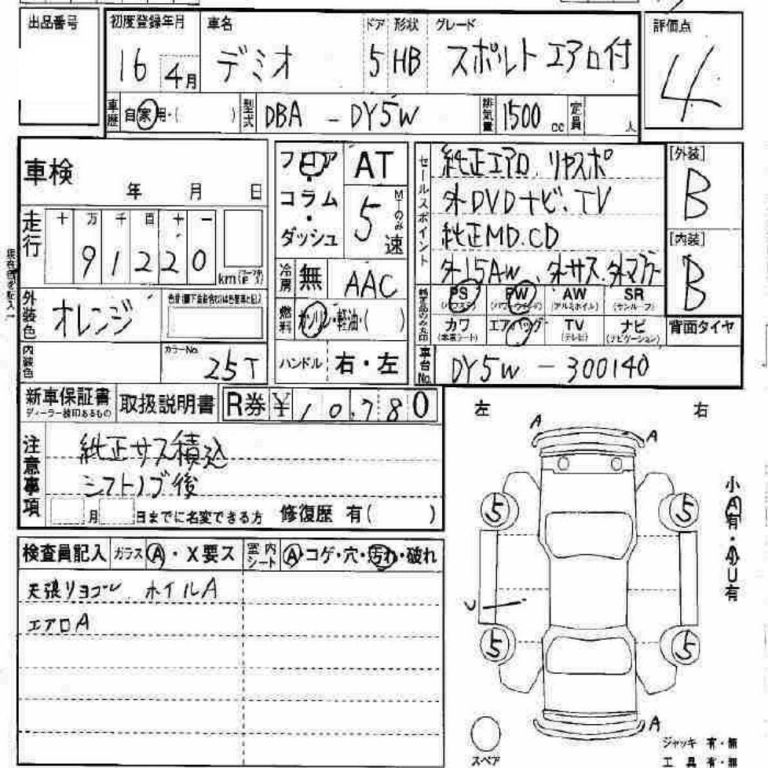 出品番号 初度登録年月 車名 ドア 形状 グレード 評価点
16 4月 デミオ 5 HB スポルト エアロ付 4
車歴 自家用・( ) 型式 DBA - DY5W 排気量 1500 cc 定員 人
車検 年 月 日
走行 十 万 千 百 十 一
91220 km
外装色 オレンジ
内装色 カラーNo. 25T
フロア AT
コラム・ダッシュ 5速 MTのみ
冷房 無 AAC
燃料 ガソリン・軽油・( )
ハンドル 右・左
セールスポイント
純正エアロ. リヤスポ
外DVDナビ. TV
純正MD.CD
外15AW、外サス.外マフラー
[外装] B
[内装] B
PS PW AW (アルミホイル) SR (サンルーフ)
カワ (本革シート) エアバッグ TV (テレビ) ナビ (ナビゲーション) 背面タイヤ
車台No. DY5W - 300140
新車保証書 ディーラー捺印あるもの 取扱説明書 R券 ¥ 10,780
注意事項
純正サス積込
シフトノブ後
月 日までに名変できる方 修復歴 有( )
検査員記入 ガラス A・X要ス 室内シート A・コゲ・穴・汚れ・破れ
天張りヨゴレ ホイルA
エアロA
左 右
A A
5 5
小A有・小U有
U
5 5
A
スペア
ジャッキ 有・無
工具 有・無